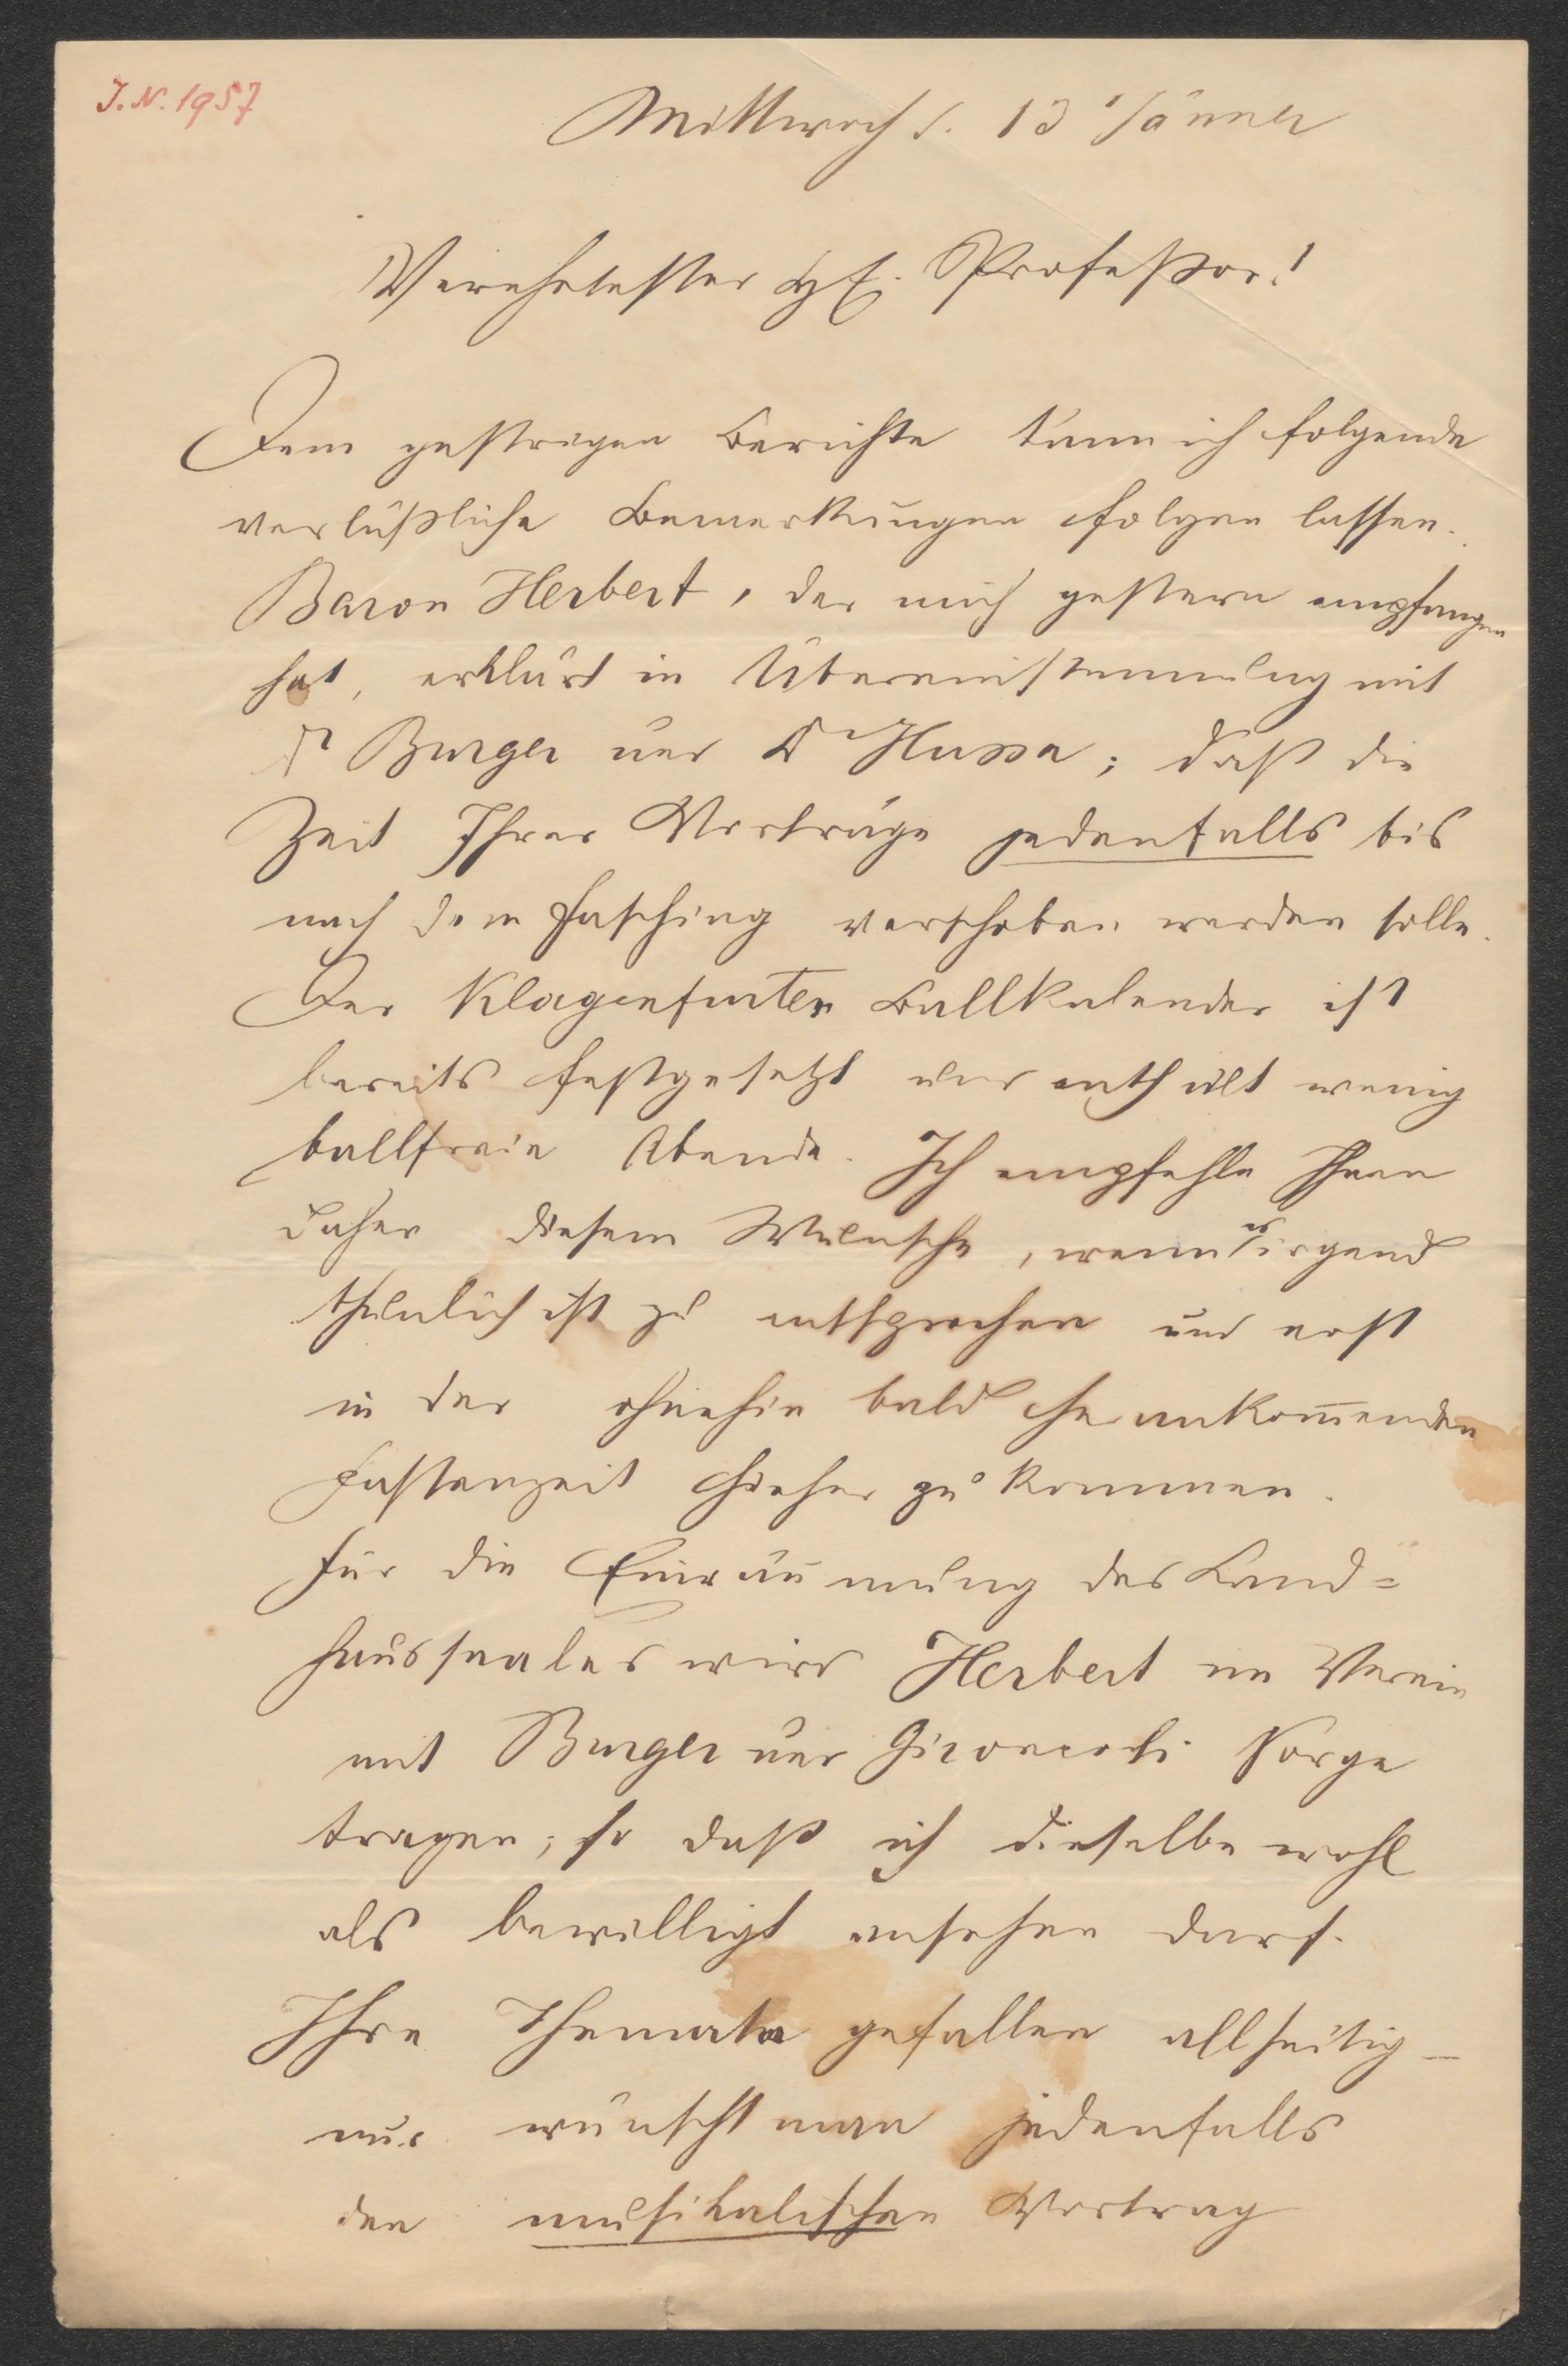 J.N. 1957
Mittwoch d. 13 Jänner
Verehrtester H. Professor!
Dem gestrigen Berichte kann ich folgende
verläßliche Bemerkungen folgen lassen.
Baron Herbert, der mich gestern empfangen
hat, erklärt in Übereinstimmung mit
Dr Burger und Dr Hussa; daß die
Zeit Ihrer Vorträge jedenfalls bis
nach dem Fasching verschoben werden solle.
Der Klagenfurter Ballkalender ist
bereits festgesetzt und enthält wenig
ballfreie Abende. Ich empfehle Ihnen
daher diesem Wunsche, wenn es irgend
thunlich ist zu entsprechen und erst
in der ohnehin bald herankom̄enden
Fastenzeit hieher zu kommen.
Für die Einräumung des Land=
haussaales wird Herbert im Verein
mit Burger und Sorge
tragen; so daß ich dieselbe wohl
als bewilligt ansehen darf.
Ihre Themata gefallen allseitig –
nur wünscht man jedenfalls
den musikalischen Vortrag